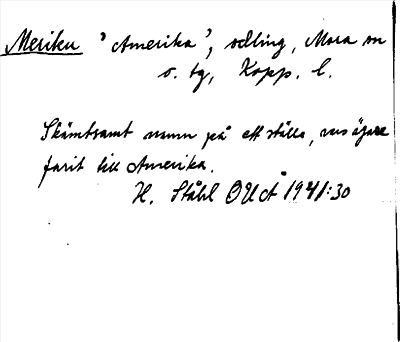 Meriku 'Amerika', odling, Mora sn
o. tg, Kopp. l.
Skämtsamt namn på ett ställe, vars ägare
farit till Amerika.
H. Ståhl OUÅ 1941:30